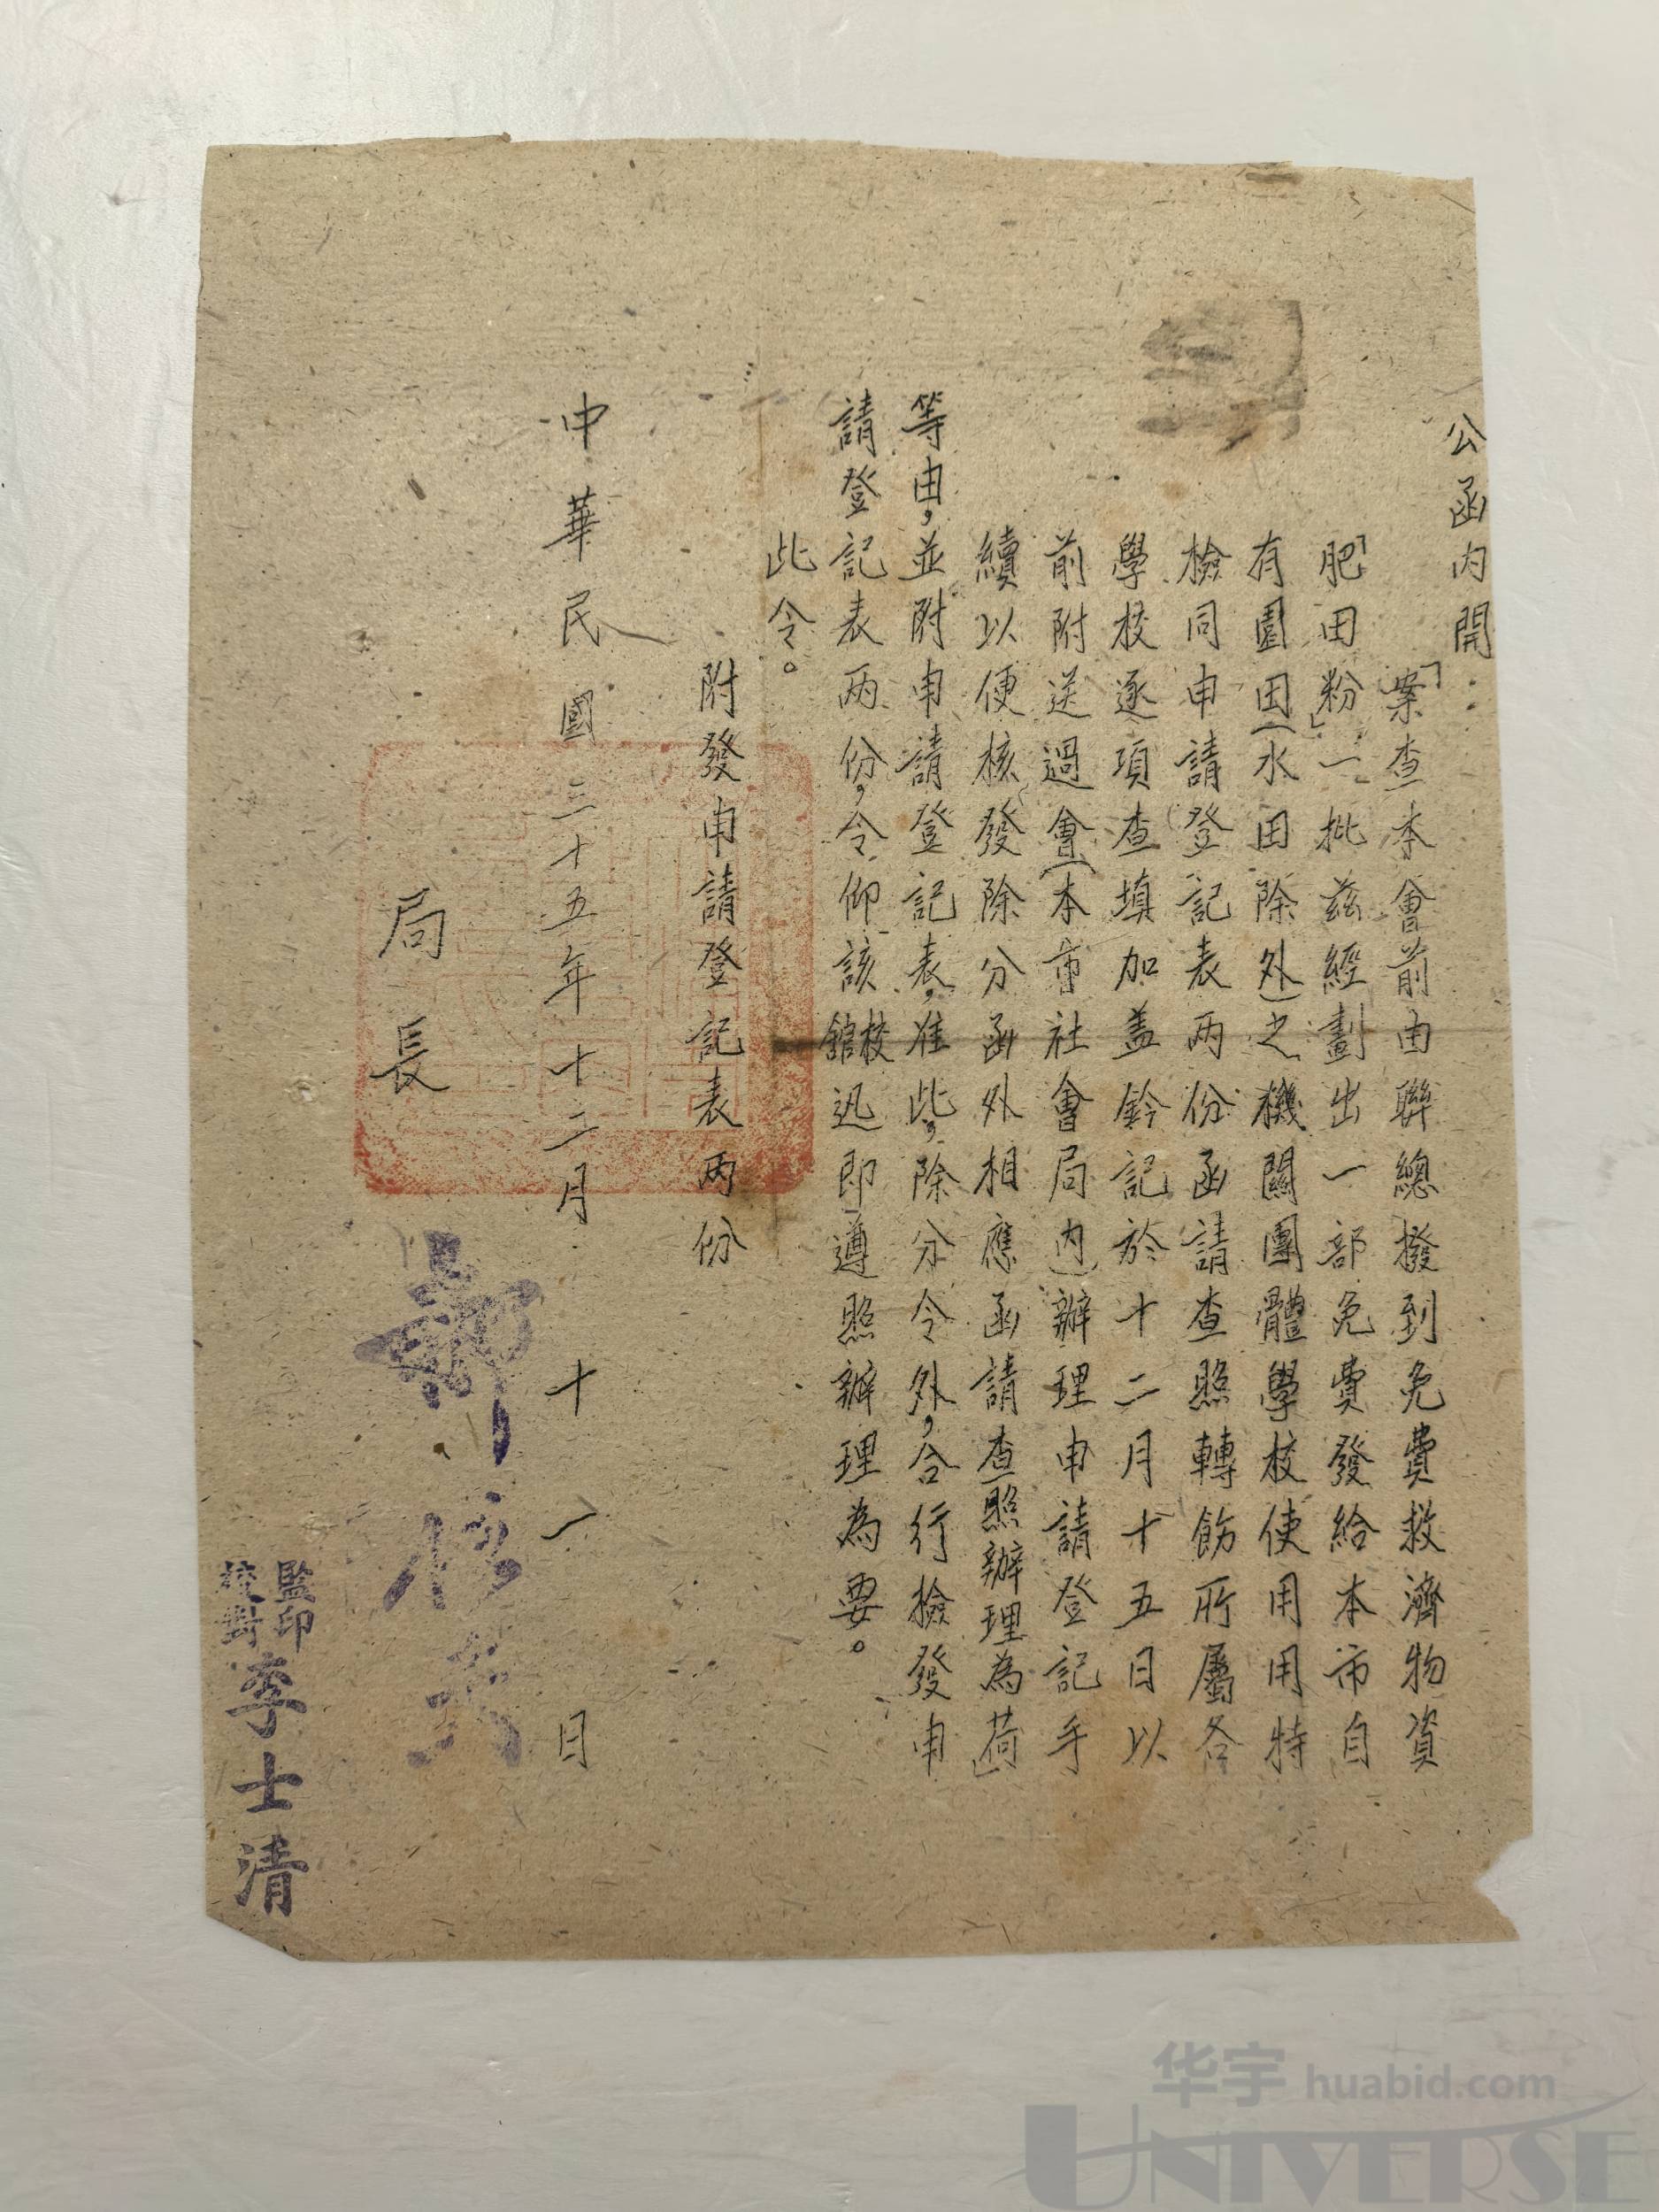 公函内開：
「案查本會前由聯總撥到免費救濟物資
「肥田粉」一批兹經劃出一部免費發給本市自
有園田（水田除外）之機關團體學校使用用特
檢同申請登記表两份函請查照轉飭所屬各
學校逐項查填加盖鈐記於十二月十五日以
前附送過會（本市社會局内）辦理申請登記手
續以便核發除分函外相應函請查照辦理為荷」
等由，並附申請登記表，准此，除分令外，合行檢發申
請登記表两份，令仰該校館迅即遵照辦理為要。
此令。
附發申請登記表两份
中華民國三十五年十二月十一日
局長
監印
校對
李士清
华宇 huabid.com
UNIVERSE